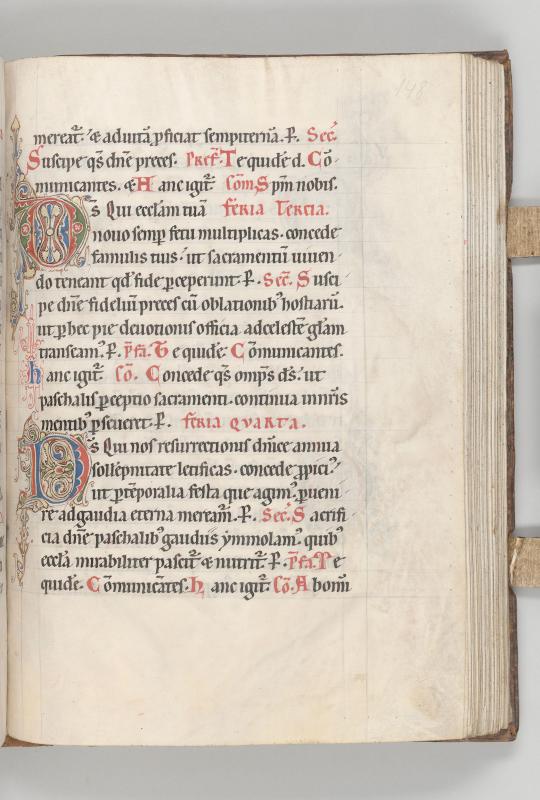 148
mereat᷑. & aduitā ꝓficiat sempiternā. P. Sec᷑.
Suscipe qs dn̄e preces. Pref. Te quidē d. Cō
municantes. & Hanc igit᷑. Com̄. Spm̄ nobis.
Ds Qui eccl̄am tuā feria Tercia.
nouo semp̄ fetu multiplicas. concede
famulis tuis. ut sacramentū uiuen
do teneant qd̓ fide ꝑceperunt. P. Sec᷑. Susci
pe dn̄e fideliū preces cū oblationib; hostiarū.
ut ꝑ hec pie deuotionis officia ad celestē gl̄am
transeam᷒. P. Pfa. Te quidē. Cōmunicantes.
hanc igit᷑. Cō. Concede qs om̄ps ds̄. ut
paschalis ꝑceptio sacramenti. continua in nr̄is
mentib; ꝑseueret. P. feria quarta.
Ds Qui nos resurrectionis dn̄ice annua
sollēpnitate letificas. concede ꝓpici᷒.
ut ꝑ tēporalia festa que agim᷒. ꝑueni
re ad gaudia eterna meream᷒. P. Sec᷑. Sacrifi
cia dn̄e paschalib; gaudiis ymmolam᷒. quib;
eccl̄a mirabiliter pascit᷑ & nutrit᷑. P. Pfa. Te
quidē. Cōmunicātes. hanc igit᷑. Cō. Ab om̄i